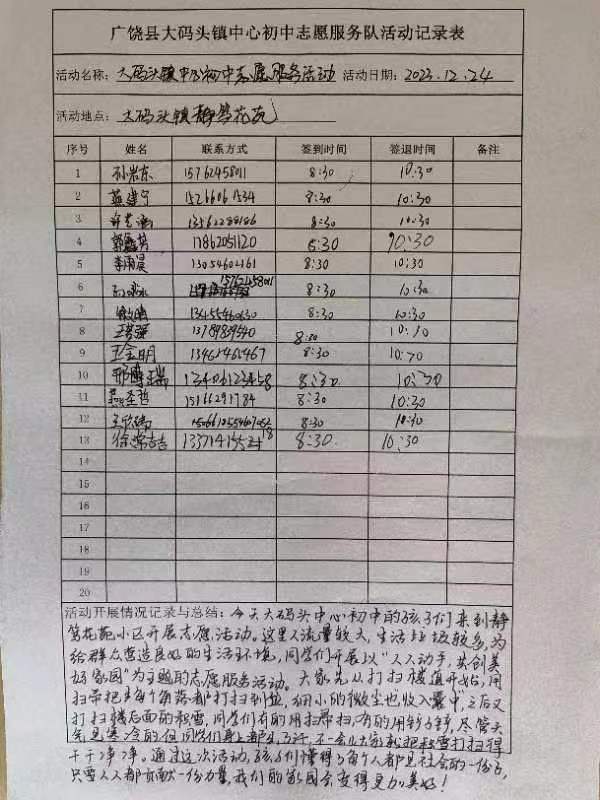 广饶县大码头镇中心初中志愿服务队活动记录表
活动名称：大码头镇中心初中志愿服务活动 活动日期：2023.12.24
活动地点：大码头镇静笃花苑
序号 姓名 联系方式 签到时间 签退时间 备注
1 孙岩东 15762458011 8:30 10:30
2 8:30 10:30
3 8:30 10:30
4 17862051120 8:30 10:30
5 李雨晨 13054602161 8:30 10:30
6 15762458011 8:30 10:30
7 13455460630 8:30 10:30
8 8:30 10:30
9 王金明 8:30 10:30
10 8:30 10:30
11 8:30 10:30
12 8:30 10:30
13 8:30 10:30
14
15
16
17
18
19
20
活动开展情况记录与总结：今天大码头中心初中的孩子们来到静
笃花苑小区开展志愿活动。这里人流量较大，生活垃圾较多，为
给群众营造良好的生活环境，同学们开展以“人人动手，共创美
好家园”为主题的志愿服务活动。大家先从打扫楼道开始，用
扫帚把每个角落都打扫到位，细小的微尘也收入囊中，之后又
打扫楼后面的积雪，同学们有的用扫帚扫，有的用锨铲，尽管天
气寒冷的但同学们身上都出了汗，不一会儿大家就把积雪打扫得
干干净净。通过这次活动，孩子们懂得了每个人都是社会的一份子，
只要人人都贡献一份力量，我们的家园会变得更加美好！